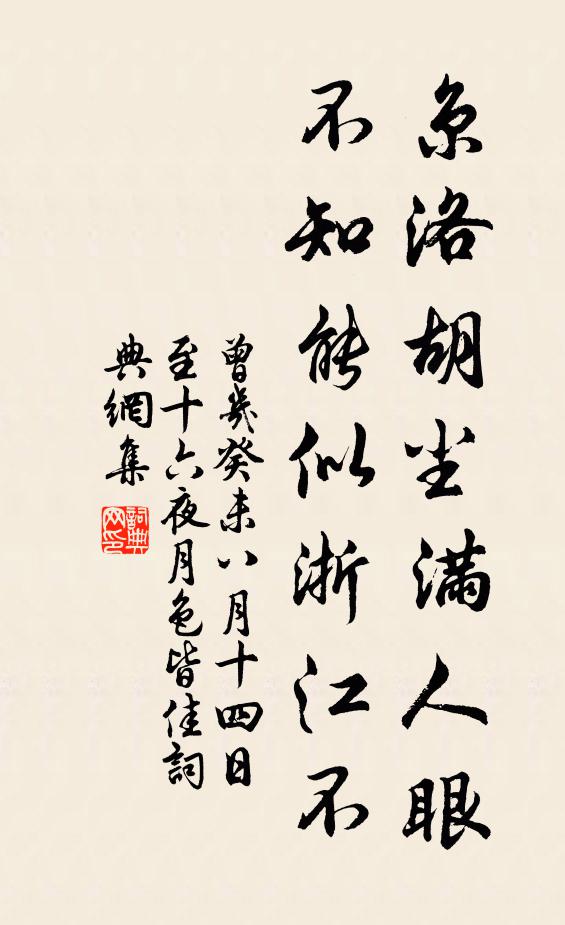 京洛胡尘满人眼
不知能似浙江不
曾幾癸未八月十四日
至十六夜月色皆佳詞
典網集
詞典
网印